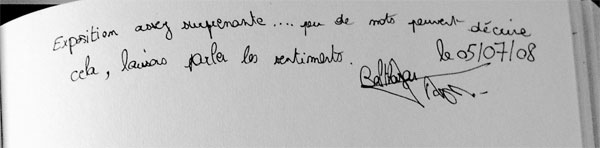 Exposition assez surprenante .... peu de mots peuvent décrire
cela, laissons parler les sentiments. le 05/07/08
Balthazar